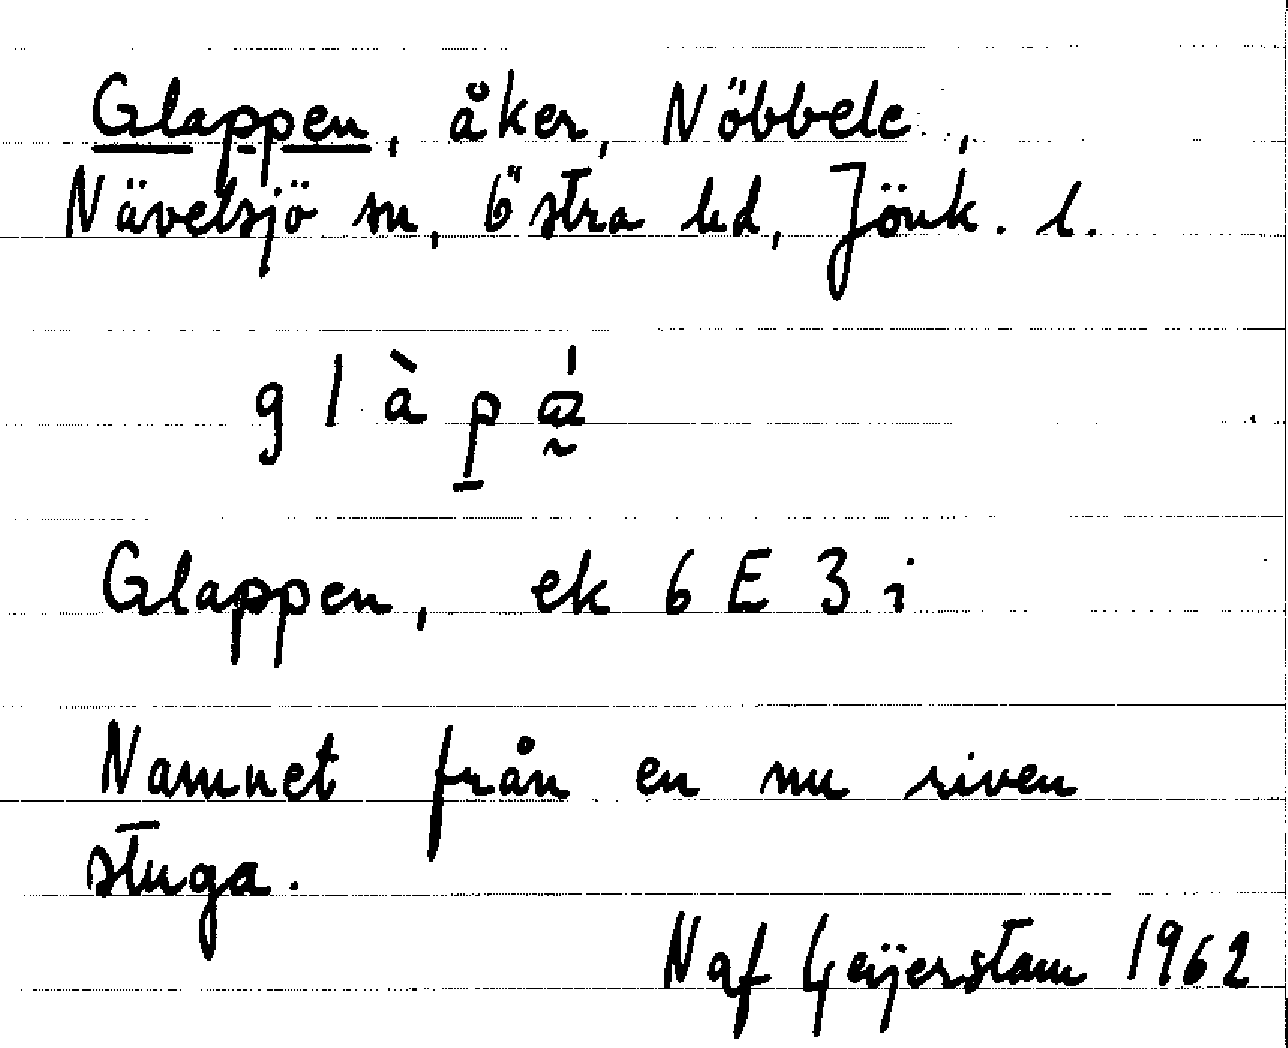 Glappen, åker, Nöbbele,
Nävelsjö sn, Östra hd, Jönk. l.
g l à p̲ á̰
Glappen, ek 6 E 3 i
Namnet från en nu riven
stuga.
N af Geijerstam 1962